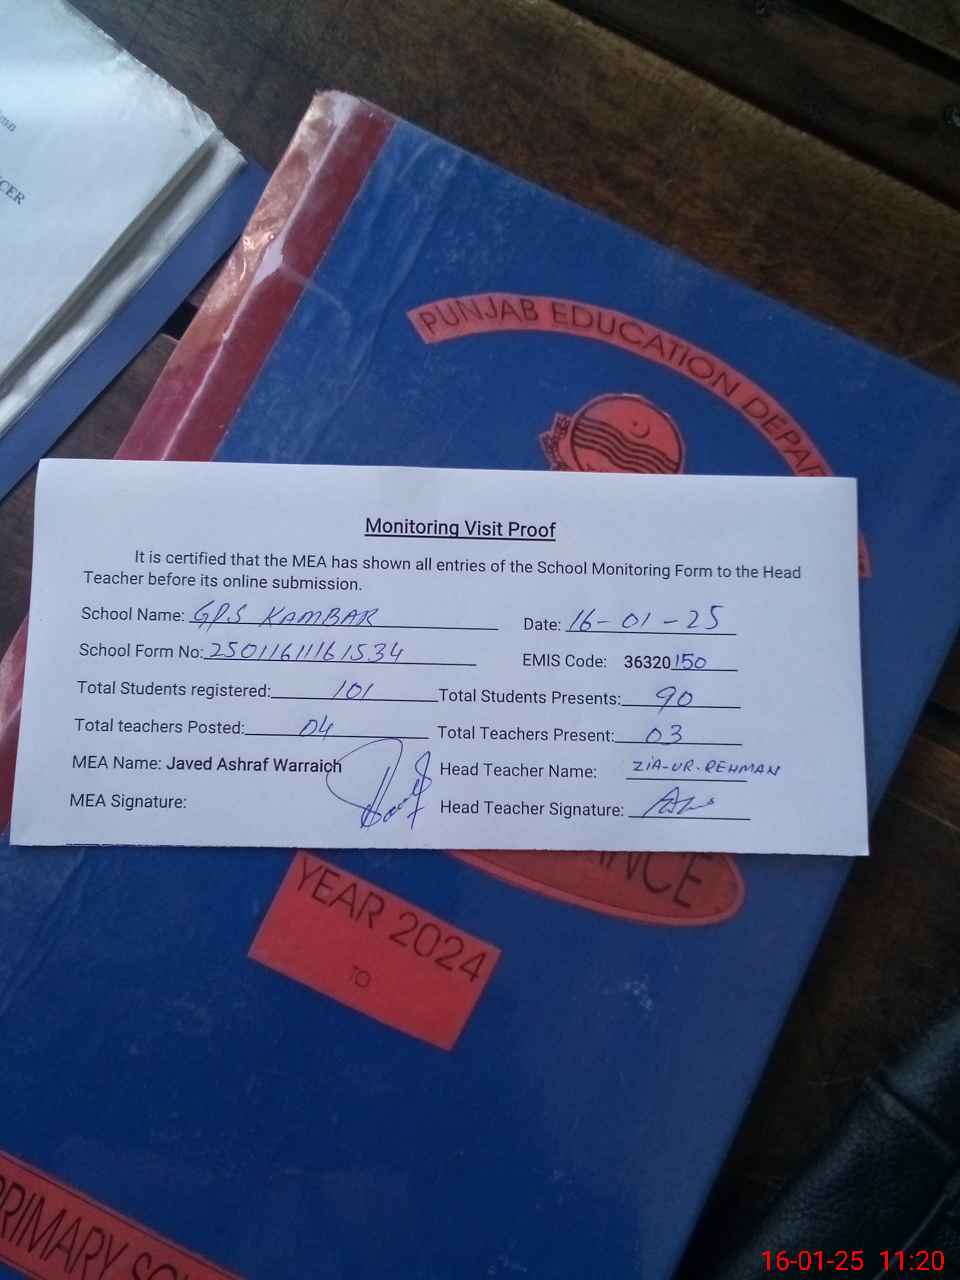 CER
PUNJAB EDUCATION DEPAR
Monitoring Visit Proof
It is certified that the MEA has shown all entries of the School Monitoring Form to the Head
Teacher before its online submission.
School Name: GPS KAMBAR Date: 16-01-25
School Form No: 25011611161534 EMIS Code: 36320150
Total Students registered: 101 Total Students Presents: 90
Total teachers Posted: 04 Total Teachers Present: 03
MEA Name: Javed Ashraf Warraich Head Teacher Name: ZIA-UR-REHMAN
MEA Signature: Head Teacher Signature:
NCE
YEAR 2024
TO
PRIMARY SC
16-01-25 11:20